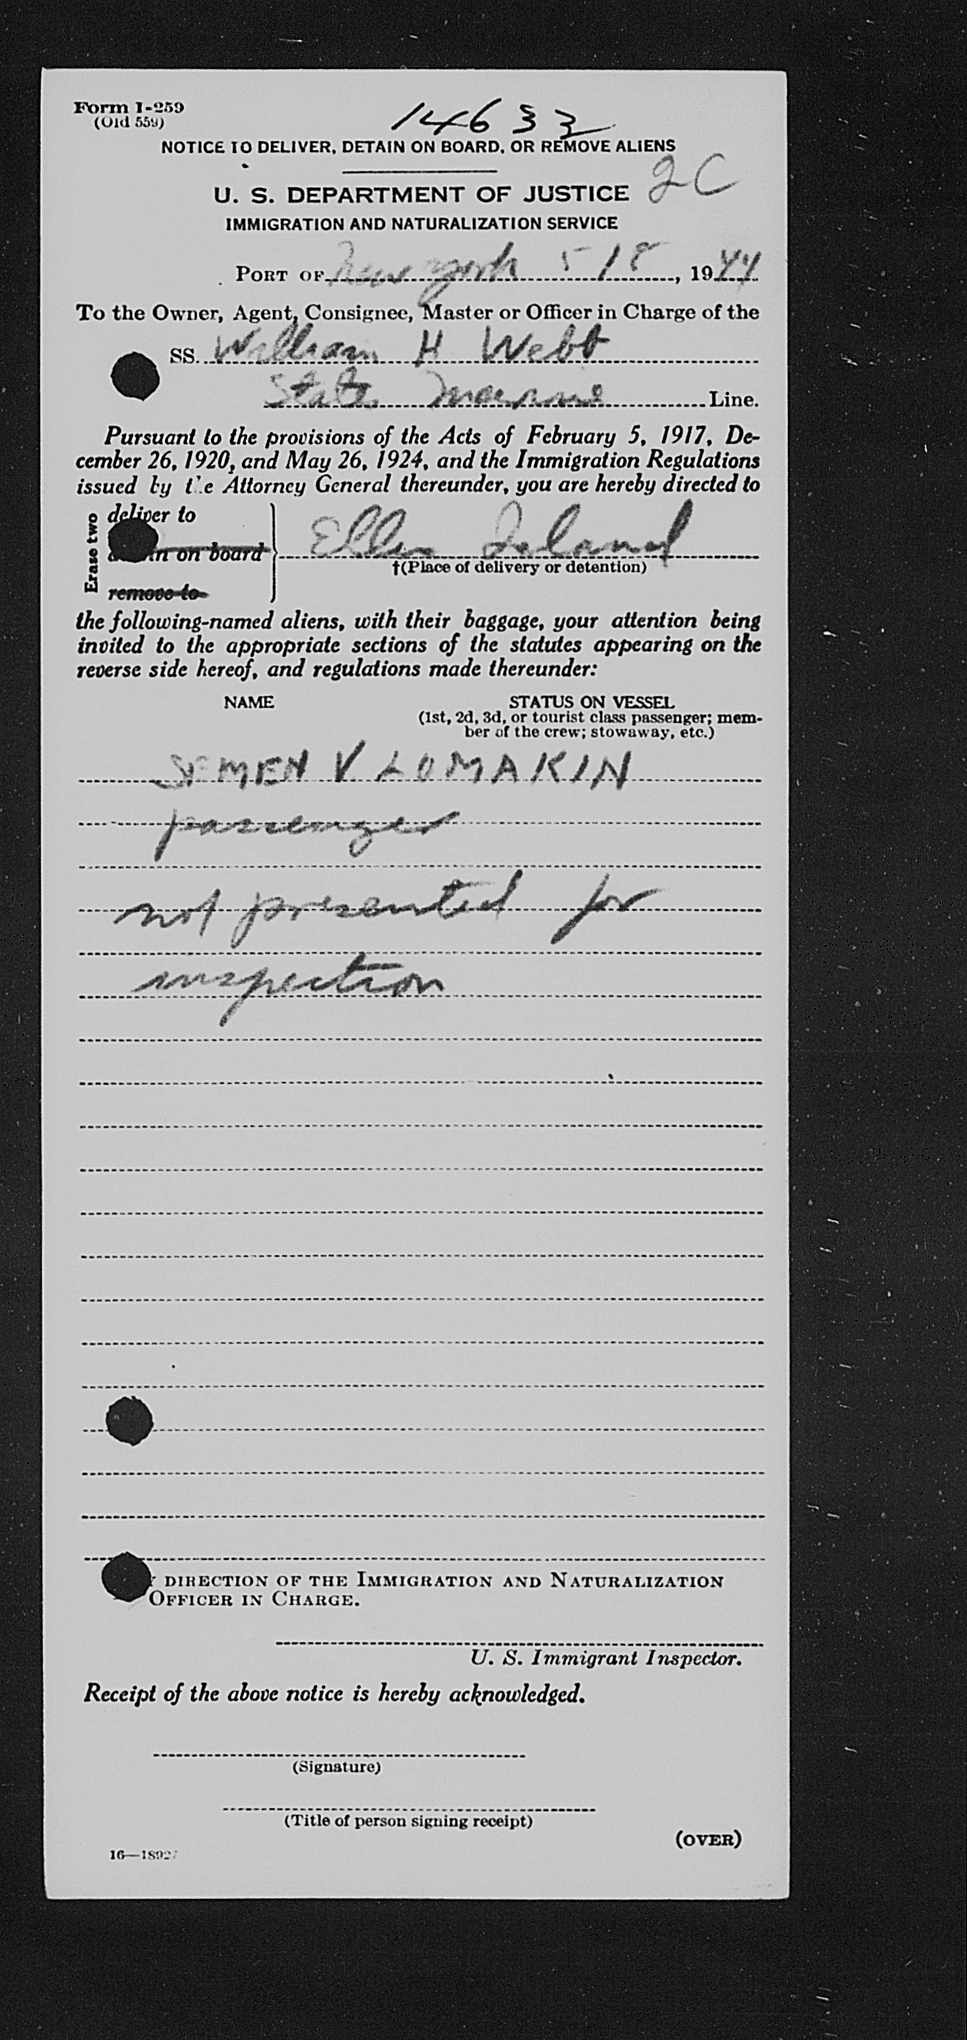 Form I-259
(Old 559)
14633
NOTICE TO DELIVER, DETAIN ON BOARD, OR REMOVE ALIENS
2C
U. S. DEPARTMENT OF JUSTICE
IMMIGRATION AND NATURALIZATION SERVICE
PORT OF New York 5 18, 1944
To the Owner, Agent, Consignee, Master or Officer in Charge of the
SS. William H Webb
State Marine Line.
Pursuant to the provisions of the Acts of February 5, 1917, De-
cember 26, 1920, and May 26, 1924, and the Immigration Regulations
issued by the Attorney General thereunder, you are hereby directed to
Erase two
deliver to
on board
remove to
Ellis Island
†(Place of delivery or detention)
the following-named aliens, with their baggage, your attention being
invited to the appropriate sections of the statutes appearing on the
reverse side hereof, and regulations made thereunder:
NAME STATUS ON VESSEL
(1st, 2d, 3d, or tourist class passenger; mem-
ber of the crew; stowaway, etc.)
SEMEN V LOMAKIN
passenger
not presented for
inspection
DIRECTION OF THE IMMIGRATION AND NATURALIZATION
OFFICER IN CHARGE.
U. S. Immigrant Inspector.
Receipt of the above notice is hereby acknowledged.
(Signature)
(Title of person signing receipt)
(OVER)
16—18927